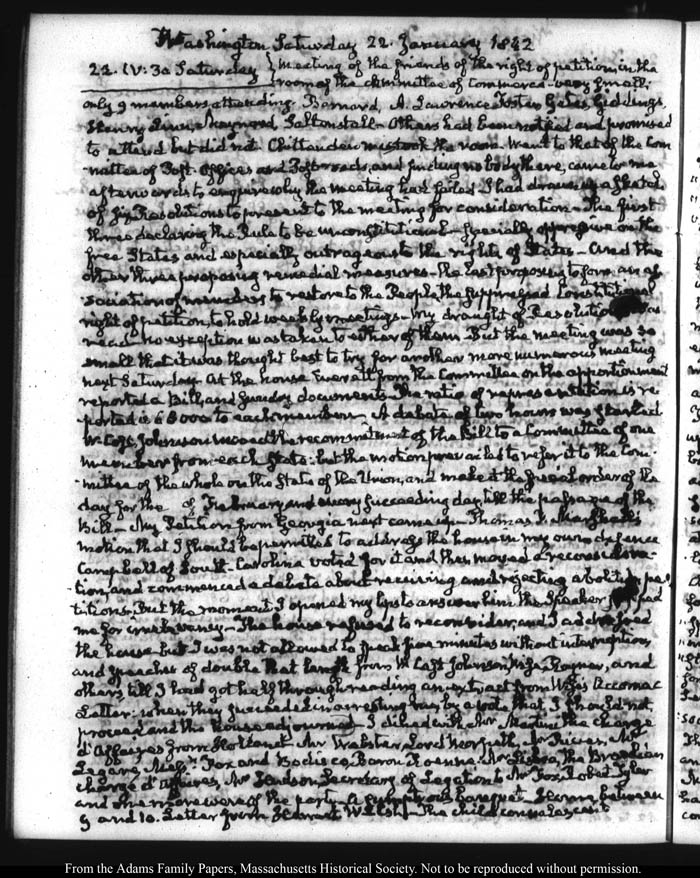 Washington Saturday 22. January 1842
22. IV:30 Saturday { Meeting of the friends of the right of petition, in the
room of the Committee of Commerce - very small.
only 9 members attending. Barnard, A. Lawrence Foster Gates, Giddings,
Henry, Linn, Maynard, Saltonstall - Others had been notified and promised
to attend but did not. Chittenden mistook the room. Went to that of the Com
-mittee of Post-Offices and Postroads, and finding nobody there, came to me
afterwards to enquire why the meeting had failed. I had drawn up a sketch
of six Resolutions to present to the meeting for consideration - The first
three declaring the Rule to be unconstitutional - specially oppressive on the
free States and especially outrageous to the rights of States - And the
other three proposing remedial measures - the last proposing to form an as
sociation of members to restore to the People the suppressed Constitutional
right of petition, to hold weekly meetings - My draught of Resolutions was
read - no exception was taken to either of them - But the meeting was so
small that it was thought best to try for another more numerous meeting
next Saturday. At the house Everett from the Committee on the apportionment
reported a Bill, and sundry documents - The ratio of representation is re
-ported is 68000 to each member - A debate of two hours was started
W. Cost Johnson moved the recommitment of the Bill to a Committee of one
member from each State: but the motion prevailed to refer it to the Com-
-mittee of the whole on the State of the Union, and make it the special order of the
day for the of February and every succeeding day till the passage of the
Bill - My Petition from Georgia next came up - Thomas F. Marshall's
motion that I should be permitted to address the house in my own defence
Campbell of South-Carolina voted for it and then moved a reconsidera-
-tion, and commenced a debate about receiving and rejecting abolition pe
titions. But the moment I opened my lips to answer him the Speaker stopped
me for irrelevancy - The house refused to reconsider, and I addressed
the house but I was not allowed to speak five minutes without interruption
and speeches of double that length from W. Cost Johnson, Wise, Rayner, and
others till I had got half through reading an extract from Wise's Accomac
Letter: when they succeeded in arresting me, by a vote that I should not
proceed and the house adjourned - I dined with Mr Martini the chargé
d'Affaires from Holland. Mr Webster, Lord Morpeth, Mr
Legaré, Mess.rs Fox and Bodisco, Baron Roenne, Mr Lisboa, the Brazilian
chargé d'Affaires, Mr Secretary of Legation to Mr Fox, Robert Tyler
and one more were of the party - A sumptuous banquet - Home between
9 and 10. Letter from Welsh - The child convalescent
From the Adams Family Papers, Massachusetts Historical Society. Not to be reproduced without permission.